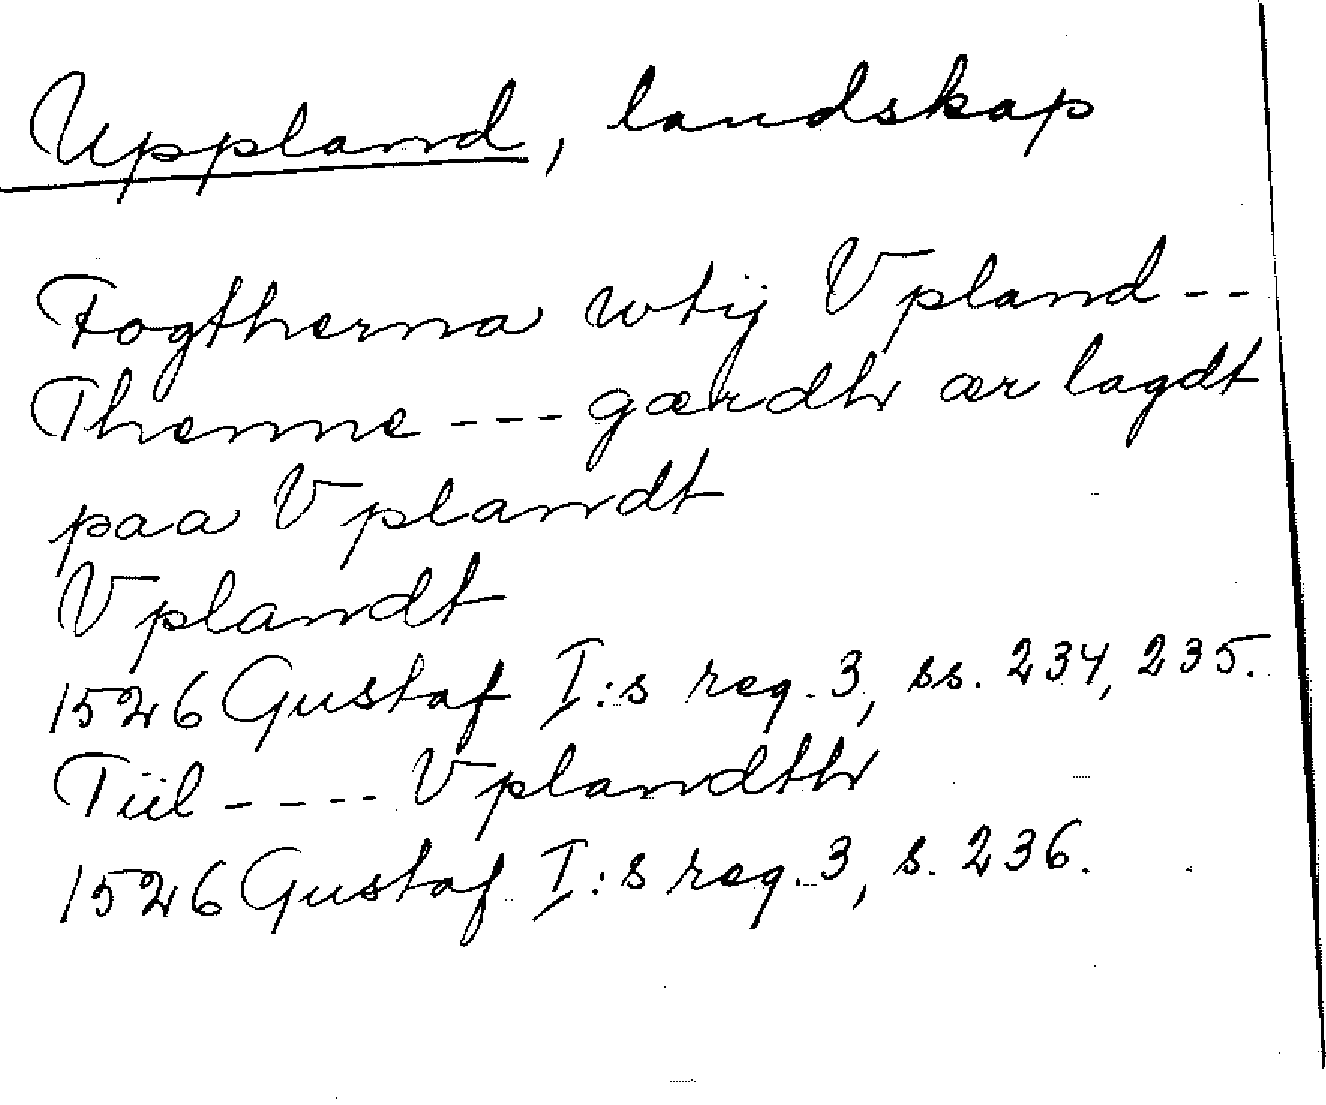 Uppland, landskap
Fogtherna wtij Vpland--
Thenne --- gærdh ær lagdt
paa Vplandt
Vplandt
1526 Gustaf I:s reg. 3, ss. 234, 235.
Tiil ---- Vplandth
1526 Gustaf I:s reg. 3, s. 236.